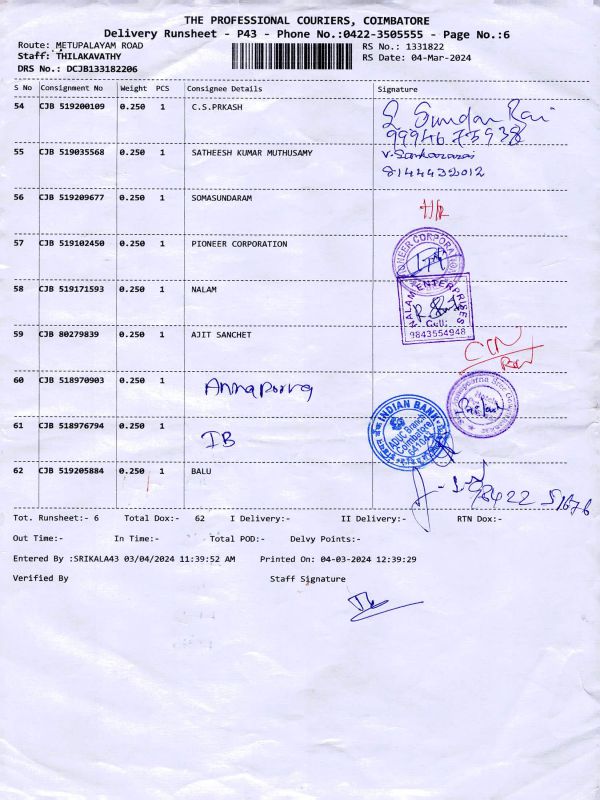 THE PROFESSIONAL COURIERS, COIMBATORE
Delivery Runsheet - P43 - Phone No.:0422-3505555 - Page No.:6
Route: METUPALAYAM ROAD
RS No.: 1331822
Staff: THILAKAVATHY
RS Date: 04-Mar-2024
DRS No.: DCJB133182206
S No Consignment No Weight PCS Consignee Details Signature
54 CJB 519200109 0.250 1 C.S.PRKASH
S Sundar Raj
9994675938
55 CJB 519035568 0.250 1 SATHEESH KUMAR MUTHUSAMY
8144432012
56 CJB 519209677 0.250 1 SOMASUNDARAM
57 CJB 519102450 0.250 1 PIONEER CORPORATION
PIONEER CORPORATION
58 CJB 519171593 0.250 1 NALAM
NALAM ENTERPRISES
Cell:
9843554948
59 CJB 80279839 0.250 1 AJIT SANCHET
60 CJB 518970903 0.250 1 Annaporna
61 CJB 518976794 0.250 1 IB
INDIAN BANK
Coimbatore
62 CJB 519205884 0.250 1 BALU
98422 51676
Tot. Runsheet:- 6 Total Dox:- 62 I Delivery:- II Delivery:- RTN Dox:-
Out Time:- In Time:- Total POD:- Delvy Points:-
Entered By :SRIKALA43 03/04/2024 11:39:52 AM Printed On: 04-03-2024 12:39:29
Verified By Staff Signature